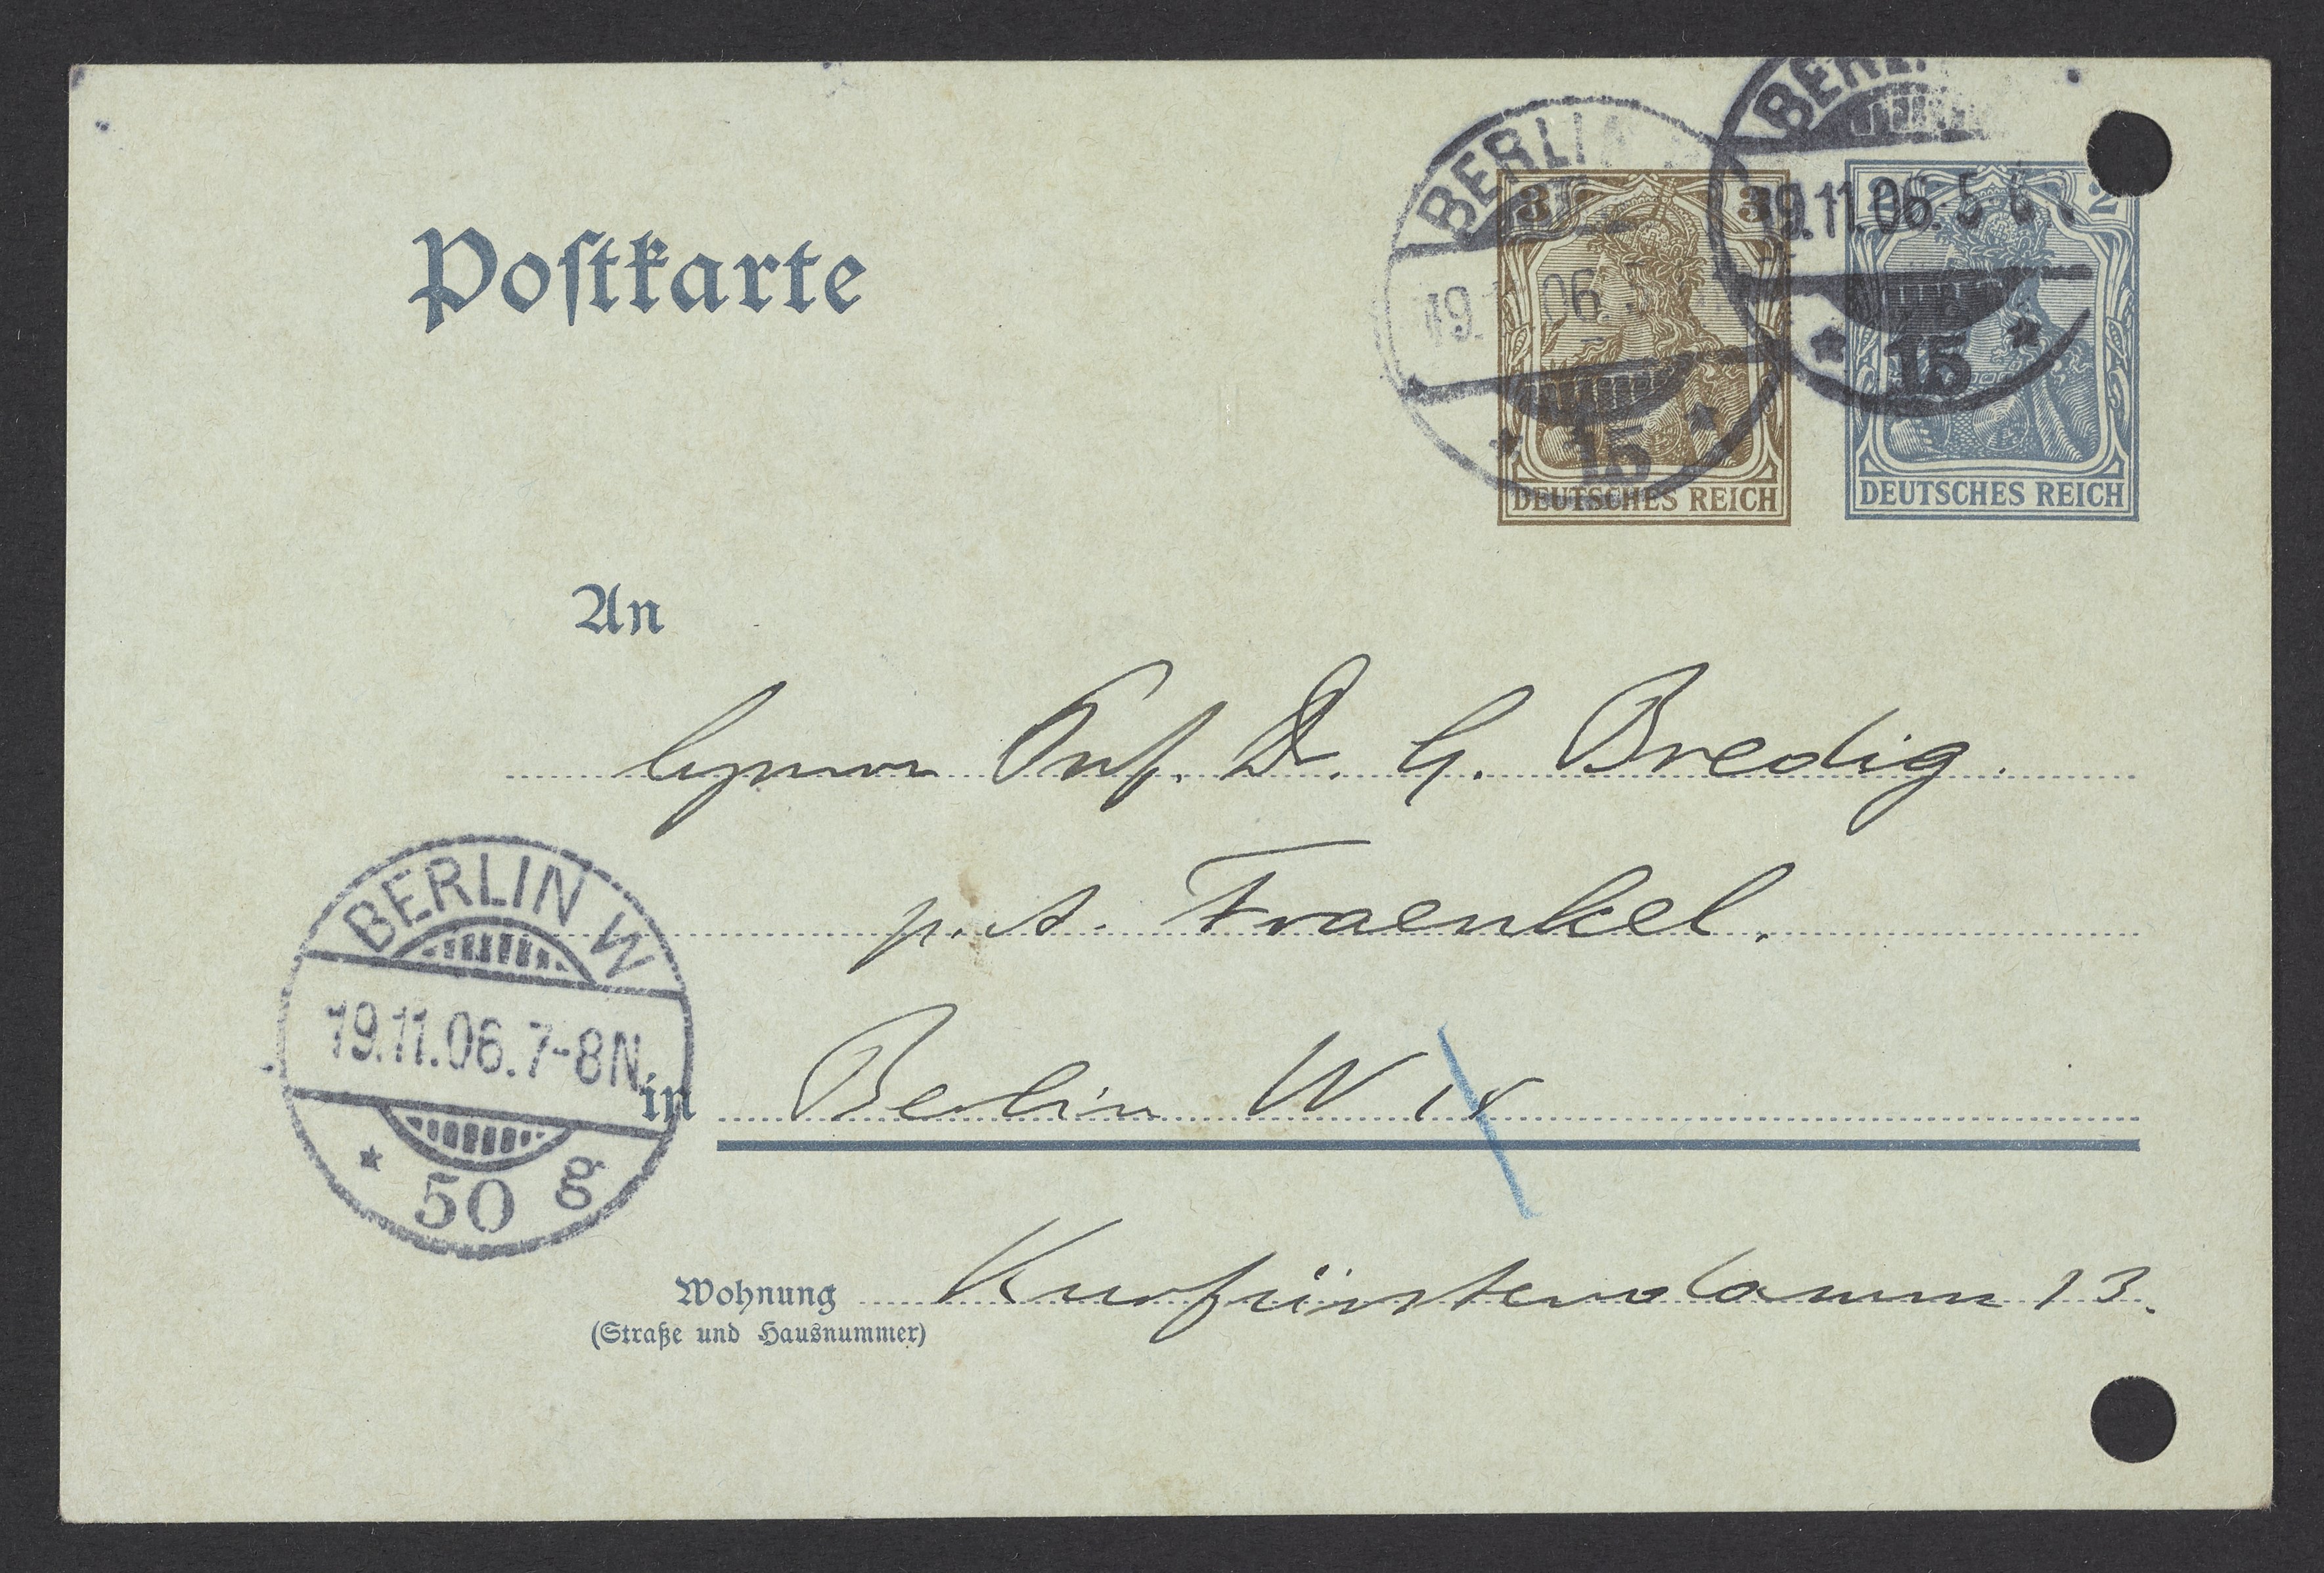 Postkarte
BERLIN
19. 06.
15
BERLI
19.11.06. 5-6
15
3 3
DEUTSCHES REICH
2
DEUTSCHES REICH
An
Herrn Prof. Dr. G. Bredig.
p. A. Fraenkel.
BERLIN W
19.11.06.7-8N.
* 50 g
in Berlin W
Wohnung Kurfürstendamm 13.
(Straße und Hausnummer)